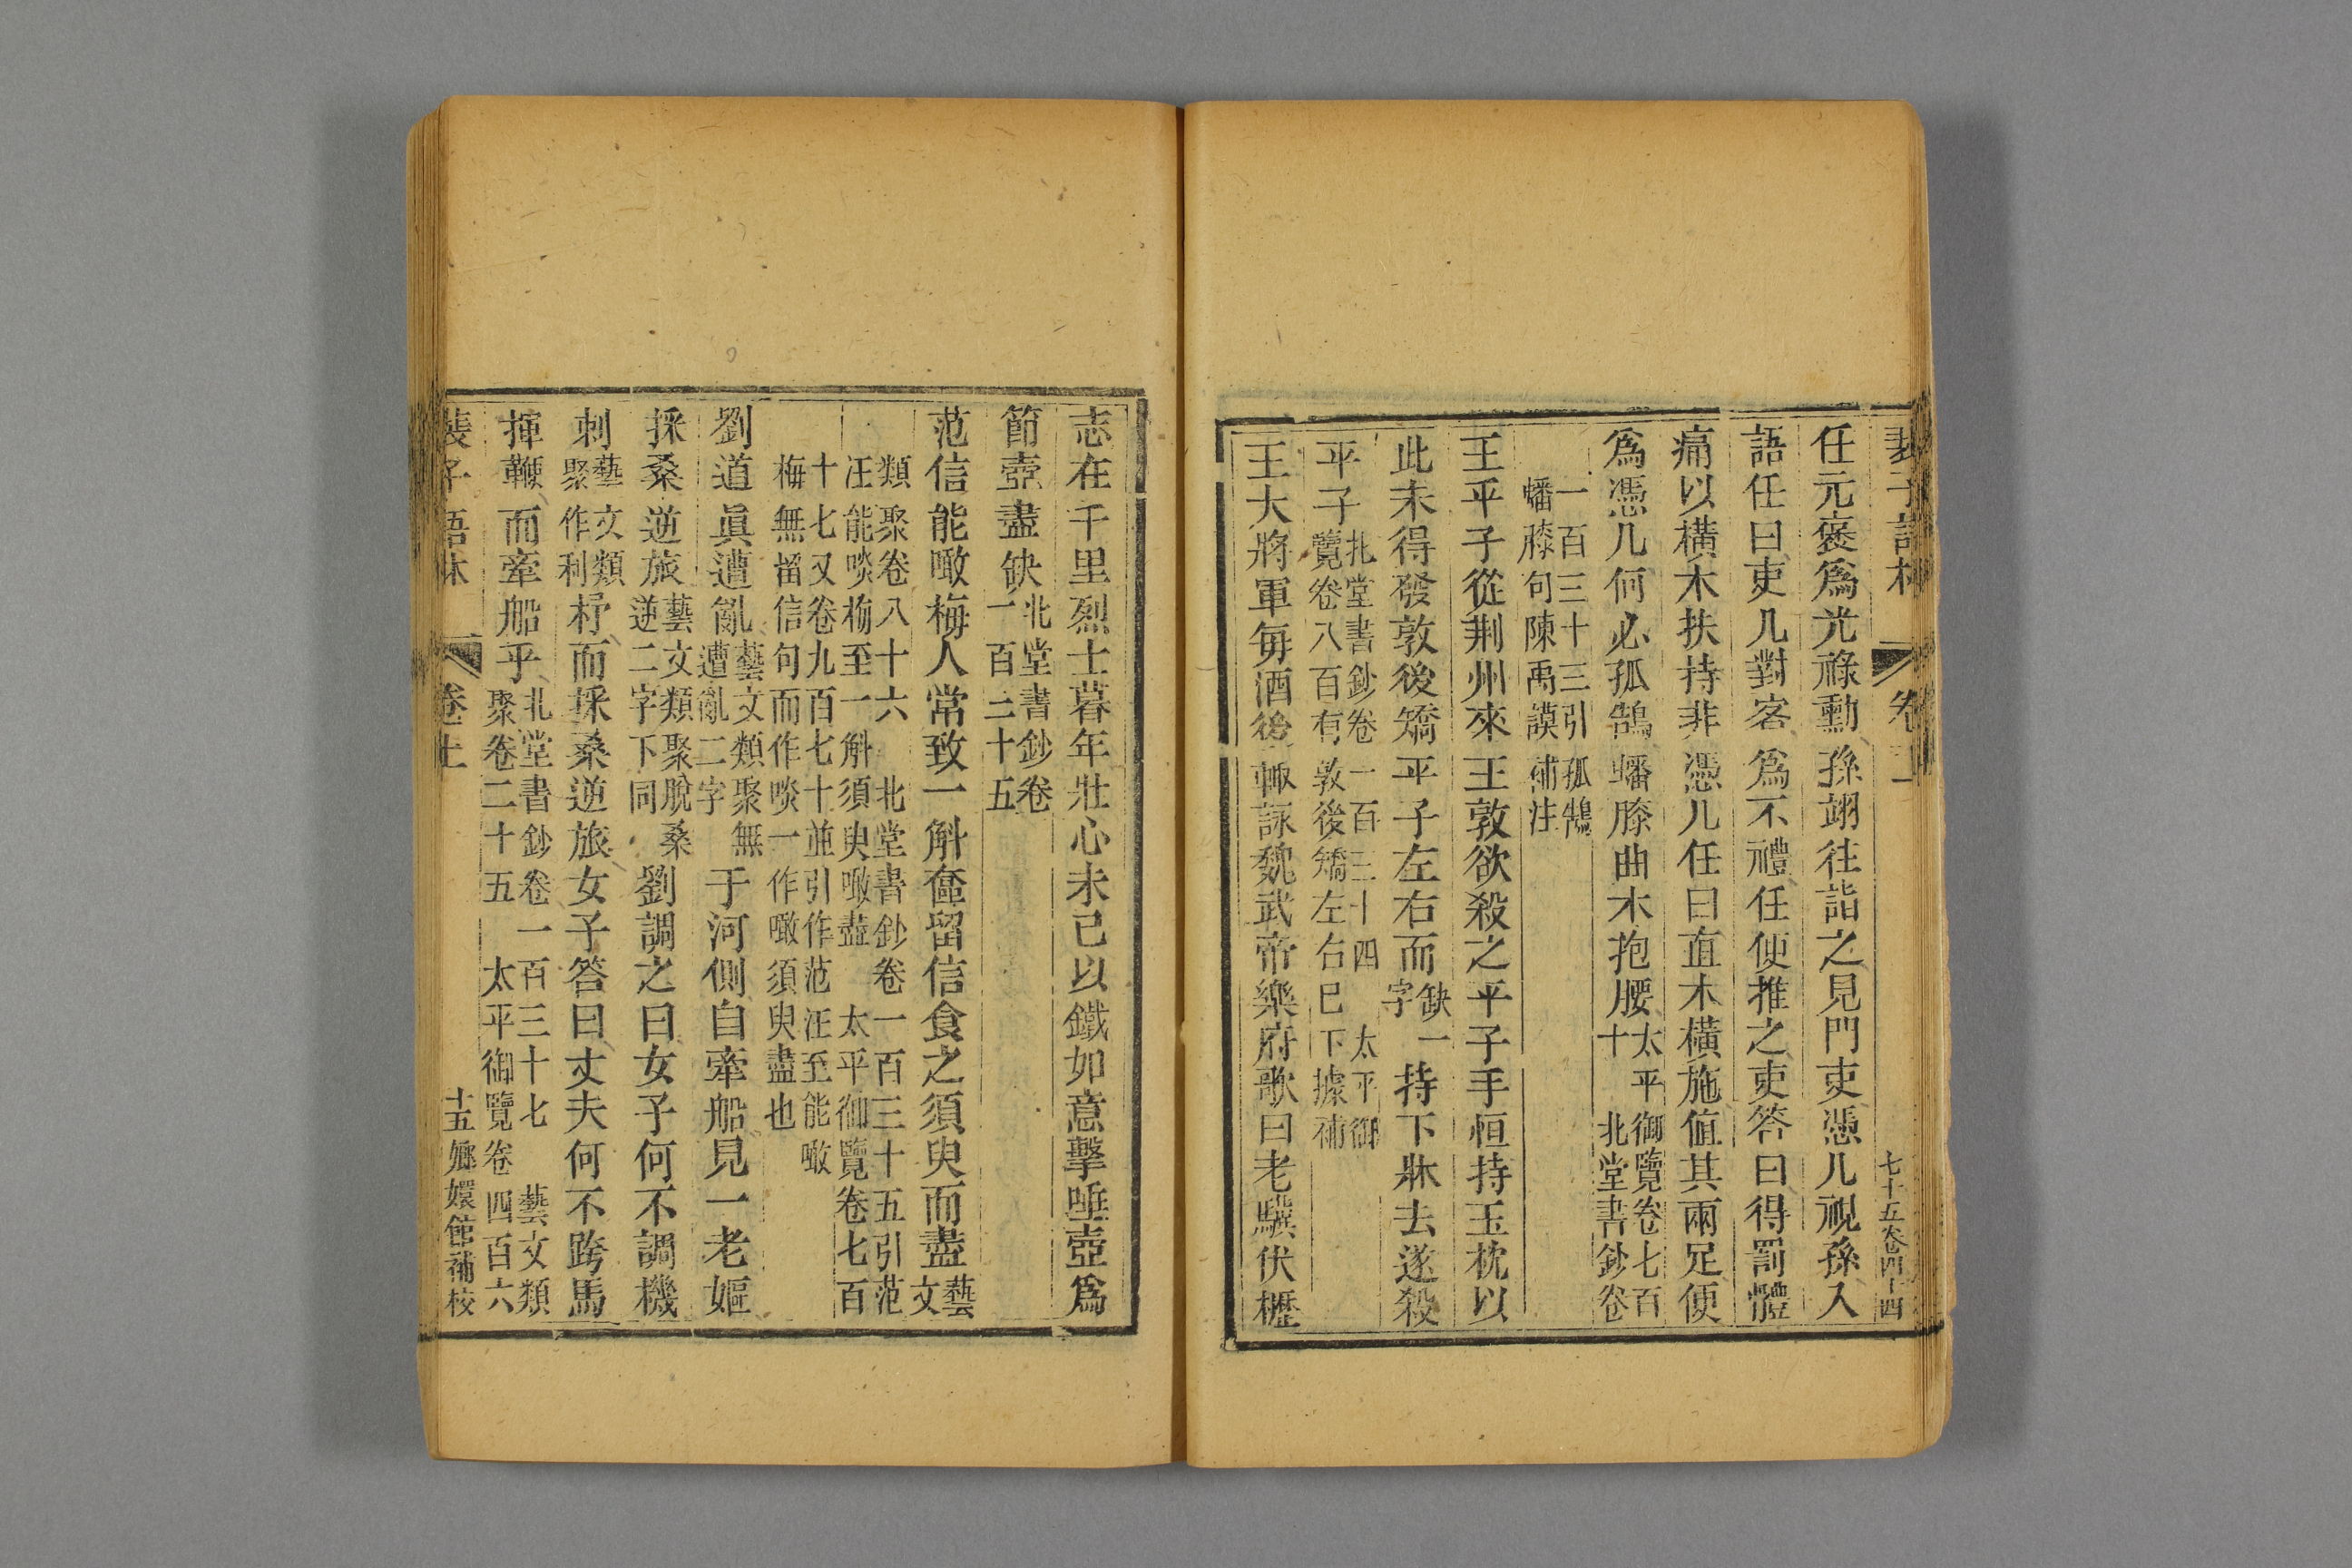 裴子語林 卷上 七十五卷四十四
任元褒爲光祿勳孫翊往詣之見門吏憑几視孫入
語任曰吏几對客爲不禮任便推之吏答曰得罰體
痛以橫木扶持非憑几任曰直木橫施值其兩足便
爲憑几何必孤鵠蟠膝曲木抱腰太平御覽卷七百十 北堂書鈔卷
一百三十三引孤鵠蟠膝句陳禹謨補注
王平子從荆州來王敦欲殺之平子手恒持玉枕以
此未得發敦後矯平子左右而缺一字持下牀去遂殺
平子北堂書鈔卷一百三十四 太平御覽卷八百有敦後矯左右巳下據補
王大將軍每酒後輒詠魏武帝樂府歌曰老驥伏櫪
志在千里烈士暮年壯心未已以鐵如意擊唾壺爲
節壺盡缺北堂書鈔卷一百三十五
范信能噉梅人常致一斛奩留信食之須臾而盡藝文
類聚卷八十六 北堂書鈔卷一百三十五引范汪能啖梅至一斛須臾噉盡 太平御覽卷七百
十七又卷九百七十並引作范汪至能噉梅無留信句而作啖一作噉須臾盡也
劉道眞遭亂藝文類聚無遭亂二字于河側自牽船見一老嫗
採桑逆旅藝文類聚脫桑逆二字下同劉調之曰女子何不調機
刺藝文類聚作利杼而採桑逆旅女子答曰丈夫何不跨馬
揮鞭而牽船乎北堂書鈔卷一百三十七 藝文類聚卷二十五 太平御覽卷四百六
裴子語林 卷上 十五嫏嬛館補校